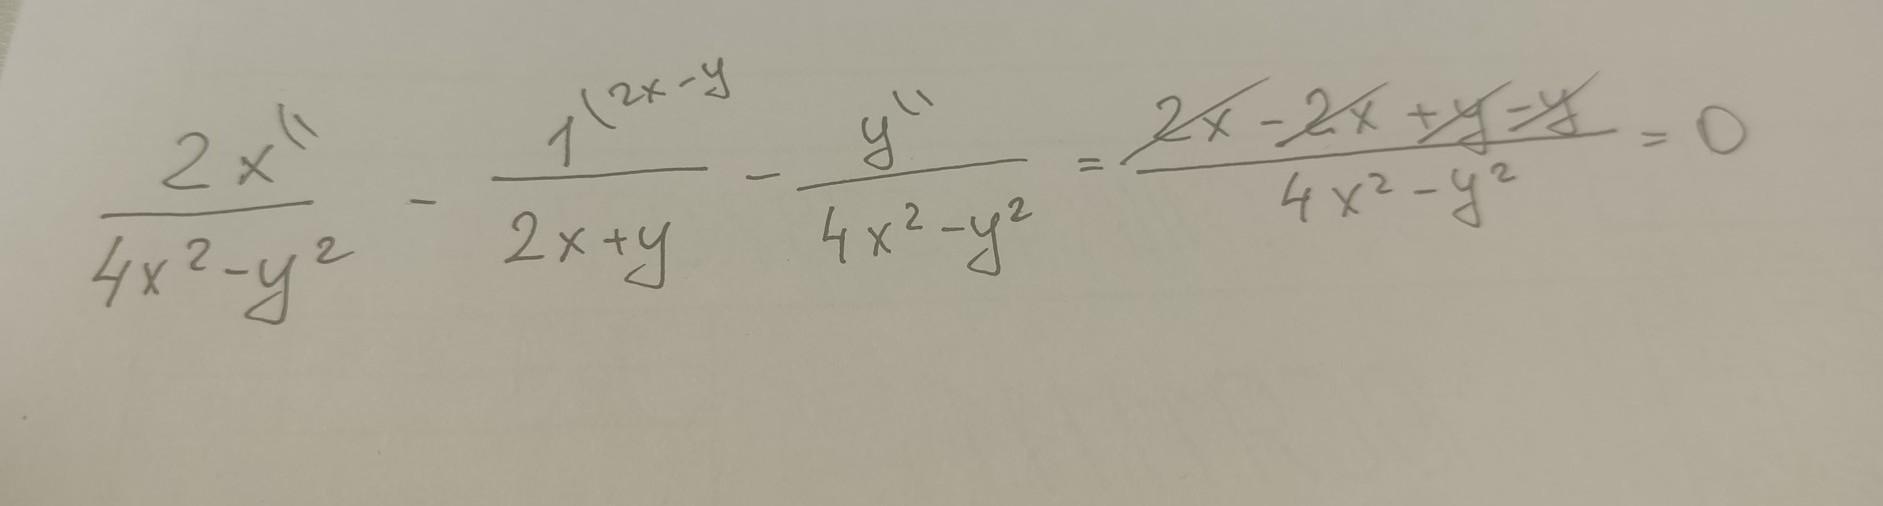 2x^{\\} / 4x² - y² - 1^{\2x - y} / 2x + y - y^{\\} / 4x² - y² = 2x - 2x + y - y / 4x² - y² = 0